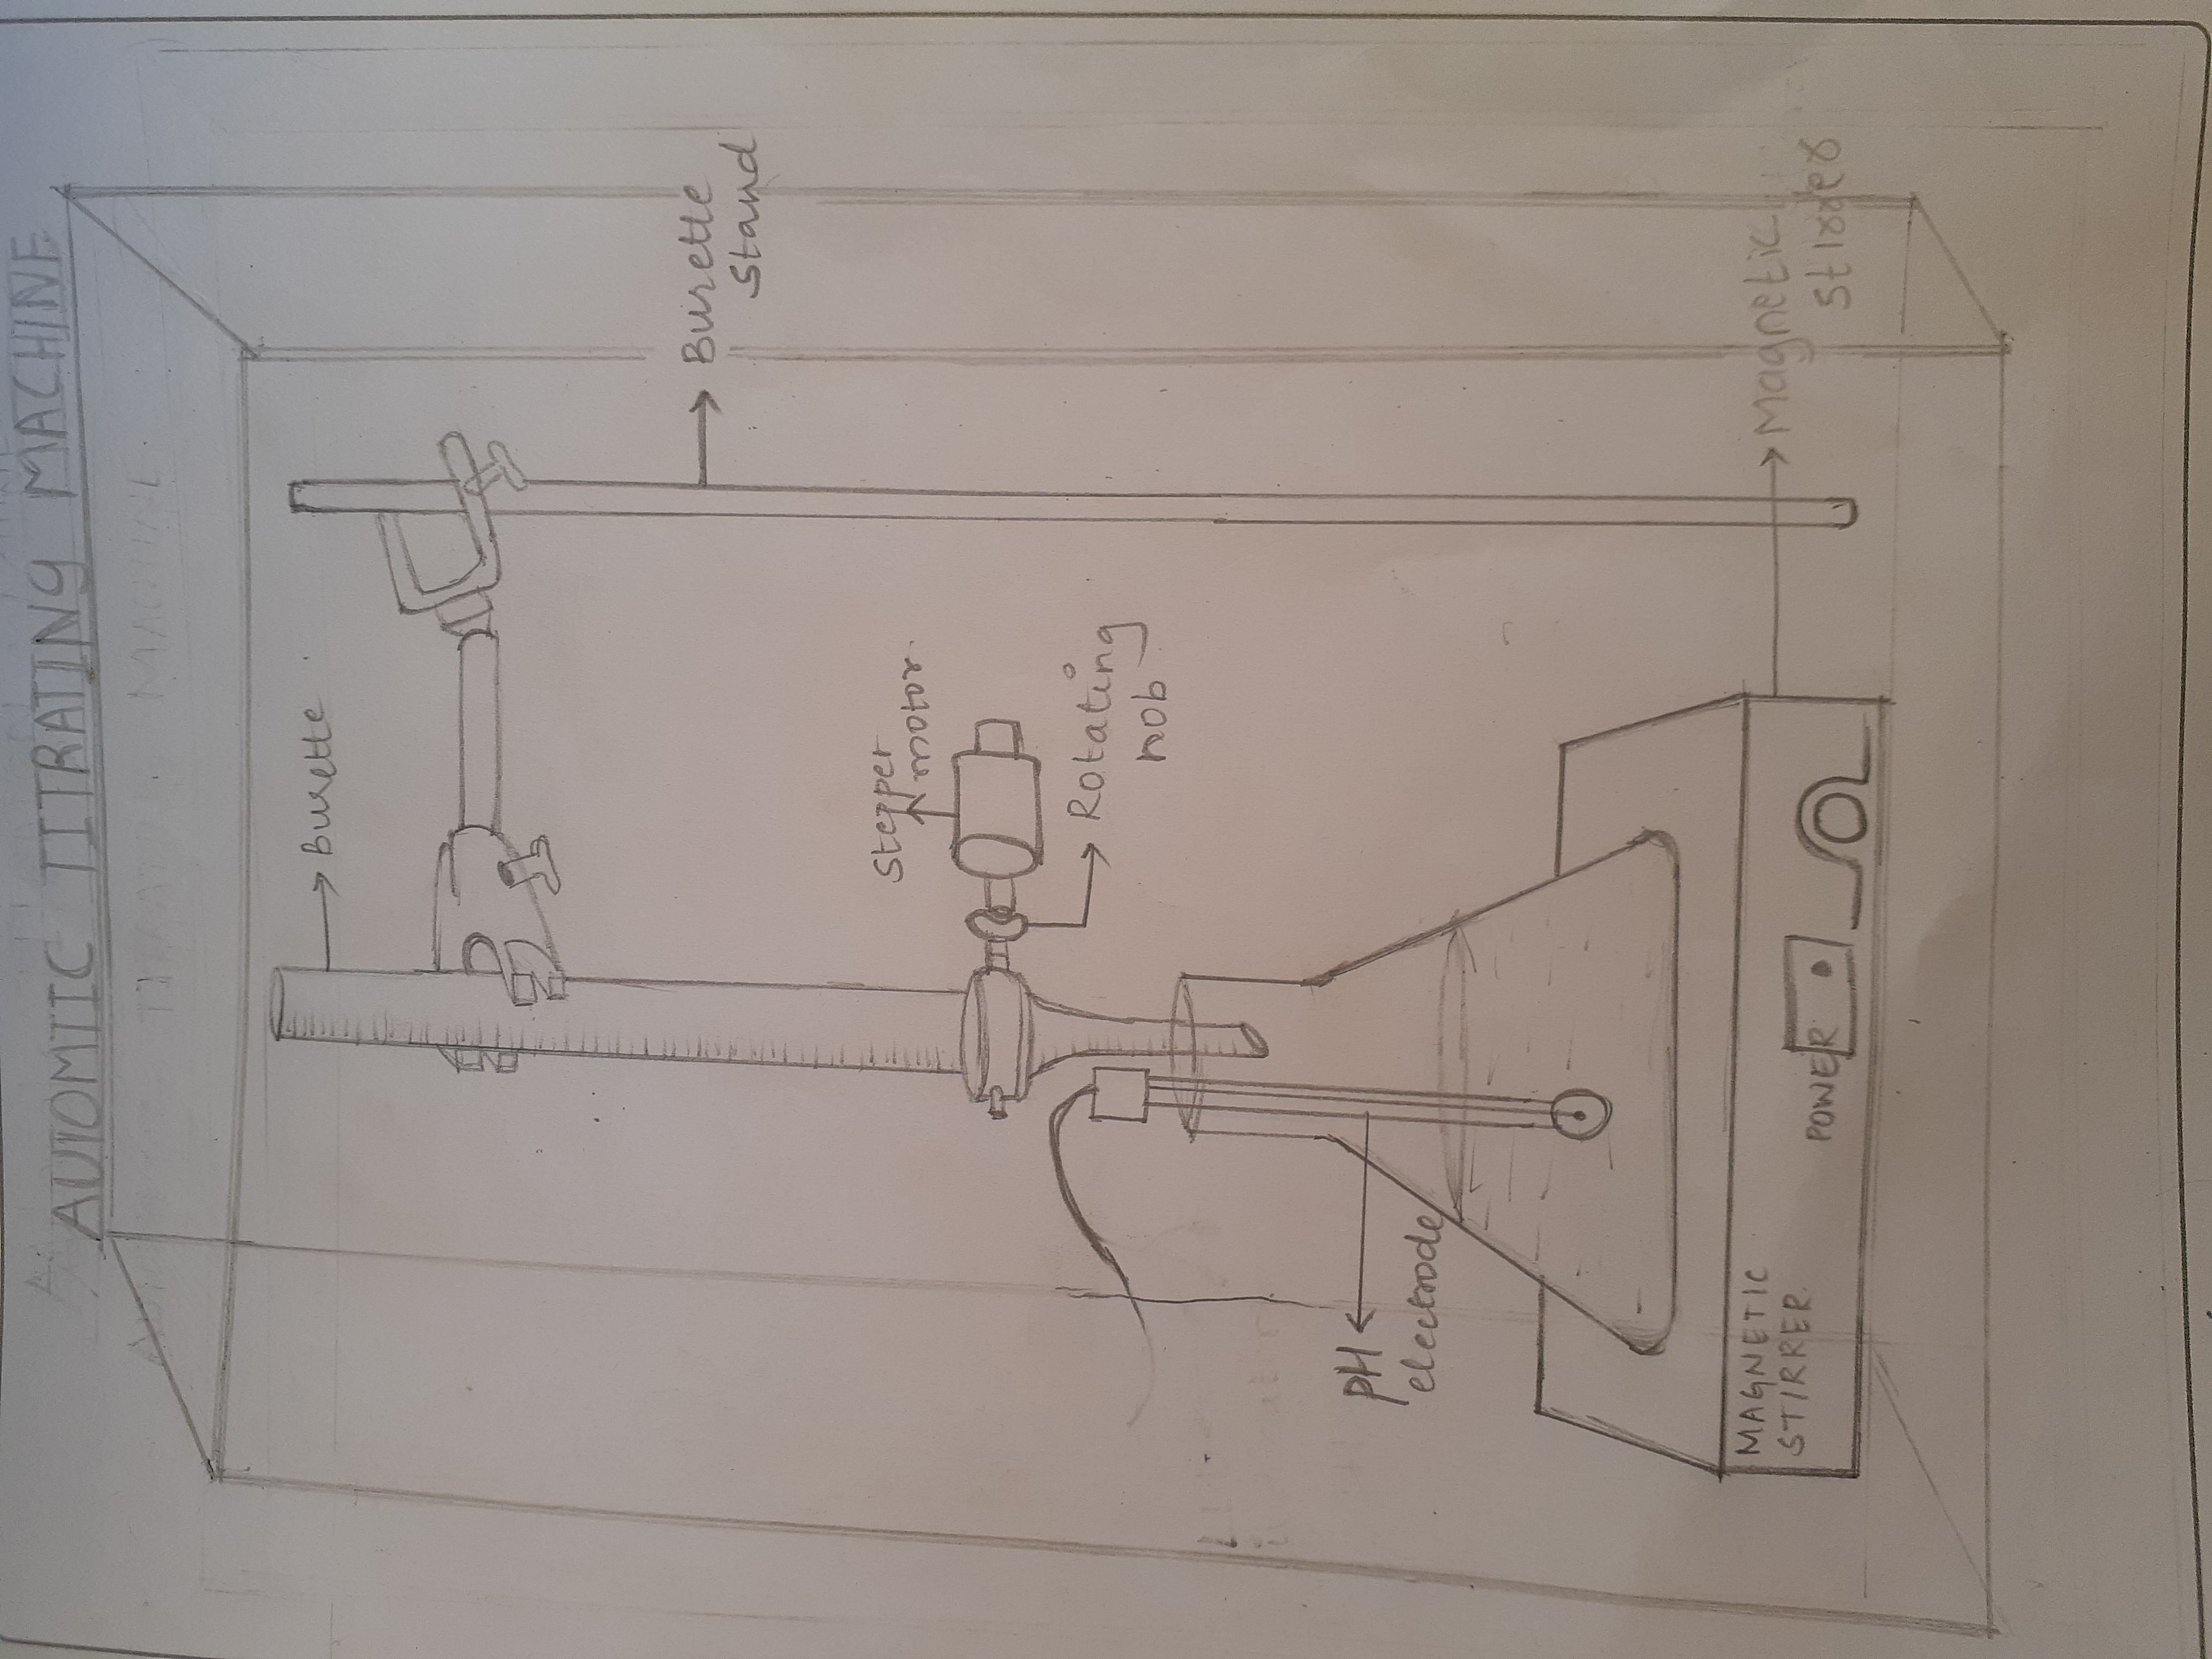 AUTOMTIC TITRATING MACHINE
Burette
Burette
Stand
Stepper
motor.
Rotating
nob
pH
electrode
MAGNETIC
STIRRER.
POWER
Magnetic
stirrer